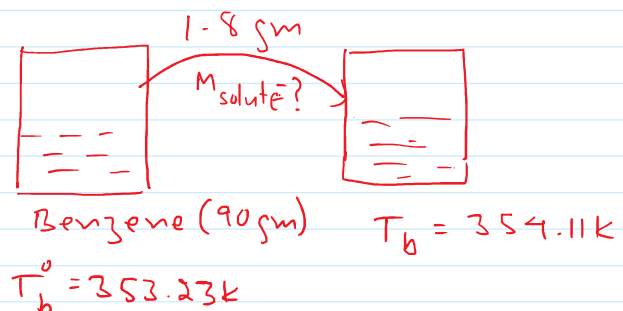 1.8 gm
M solute?
Benzene (90 gm)
T_b = 354.11K
T_b^0 = 353.23k